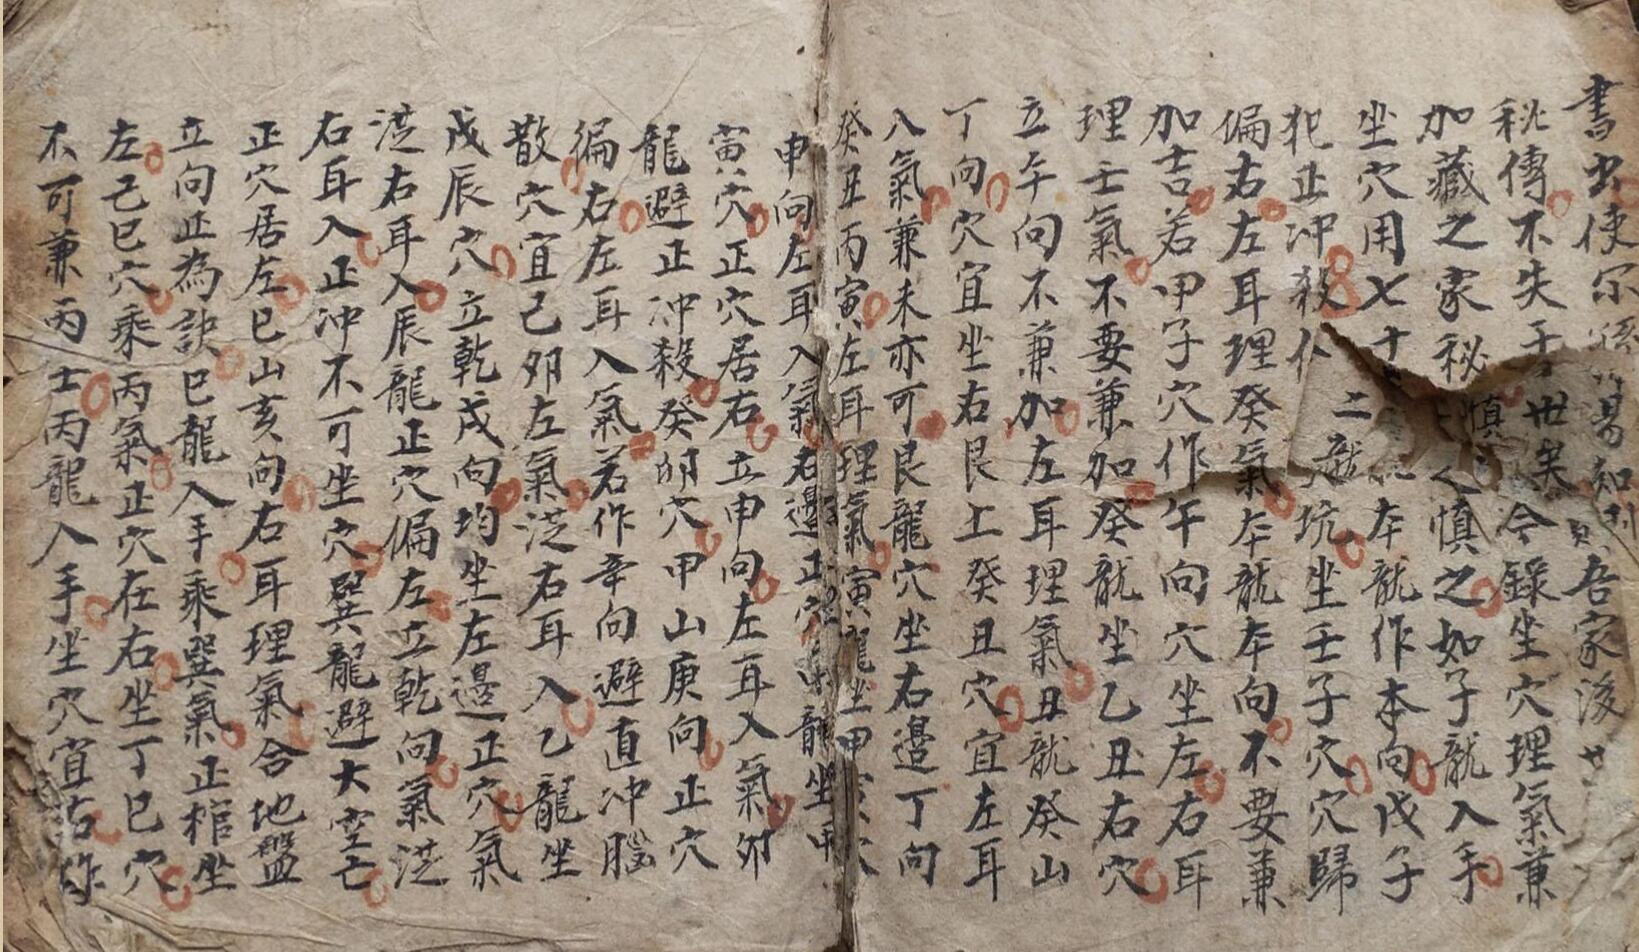 書出使吾家後
秘傳不失于世矣今錄坐穴理氣兼
加藏之家秘慎慎之如子龍入手
坐穴用七十本龍作本向戊子
犯正冲殺二龍坑坐壬子穴穴歸
偏右左耳理癸氣本龍本向不要兼
加吉若甲子穴作午向穴坐左右耳
理壬氣不要兼加癸龍坐乙丑右穴
立午向不兼加左耳理氣丑龍癸山
丁向穴宜坐右艮上癸丑穴宜左耳
八氣兼未亦可艮龍穴坐右邊丁向
癸丑丙寅左耳理氣寅龍坐甲穴
申向左耳入氣右邊正穴龍坐甲
寅穴正穴居右立申向左耳入氣夘
龍避正冲殺癸夘穴甲山庚向正穴
偏右左耳入氣若作辛向避直冲腦
散穴宜己夘左氣涖右耳入乙龍坐
戊辰穴立乾戌向均坐左邊正穴氣
涖右耳入辰龍正穴偏左立乾向氣涖
右耳入正冲不可坐穴巽龍避大空亡
正穴居左巳山亥向右耳理氣合地盤
立向正為訣巳龍入手乘巽氣正棺坐
左己巳穴乘丙氣正穴在右坐丁巳穴
不可兼丙士丙龍入手坐穴宜右